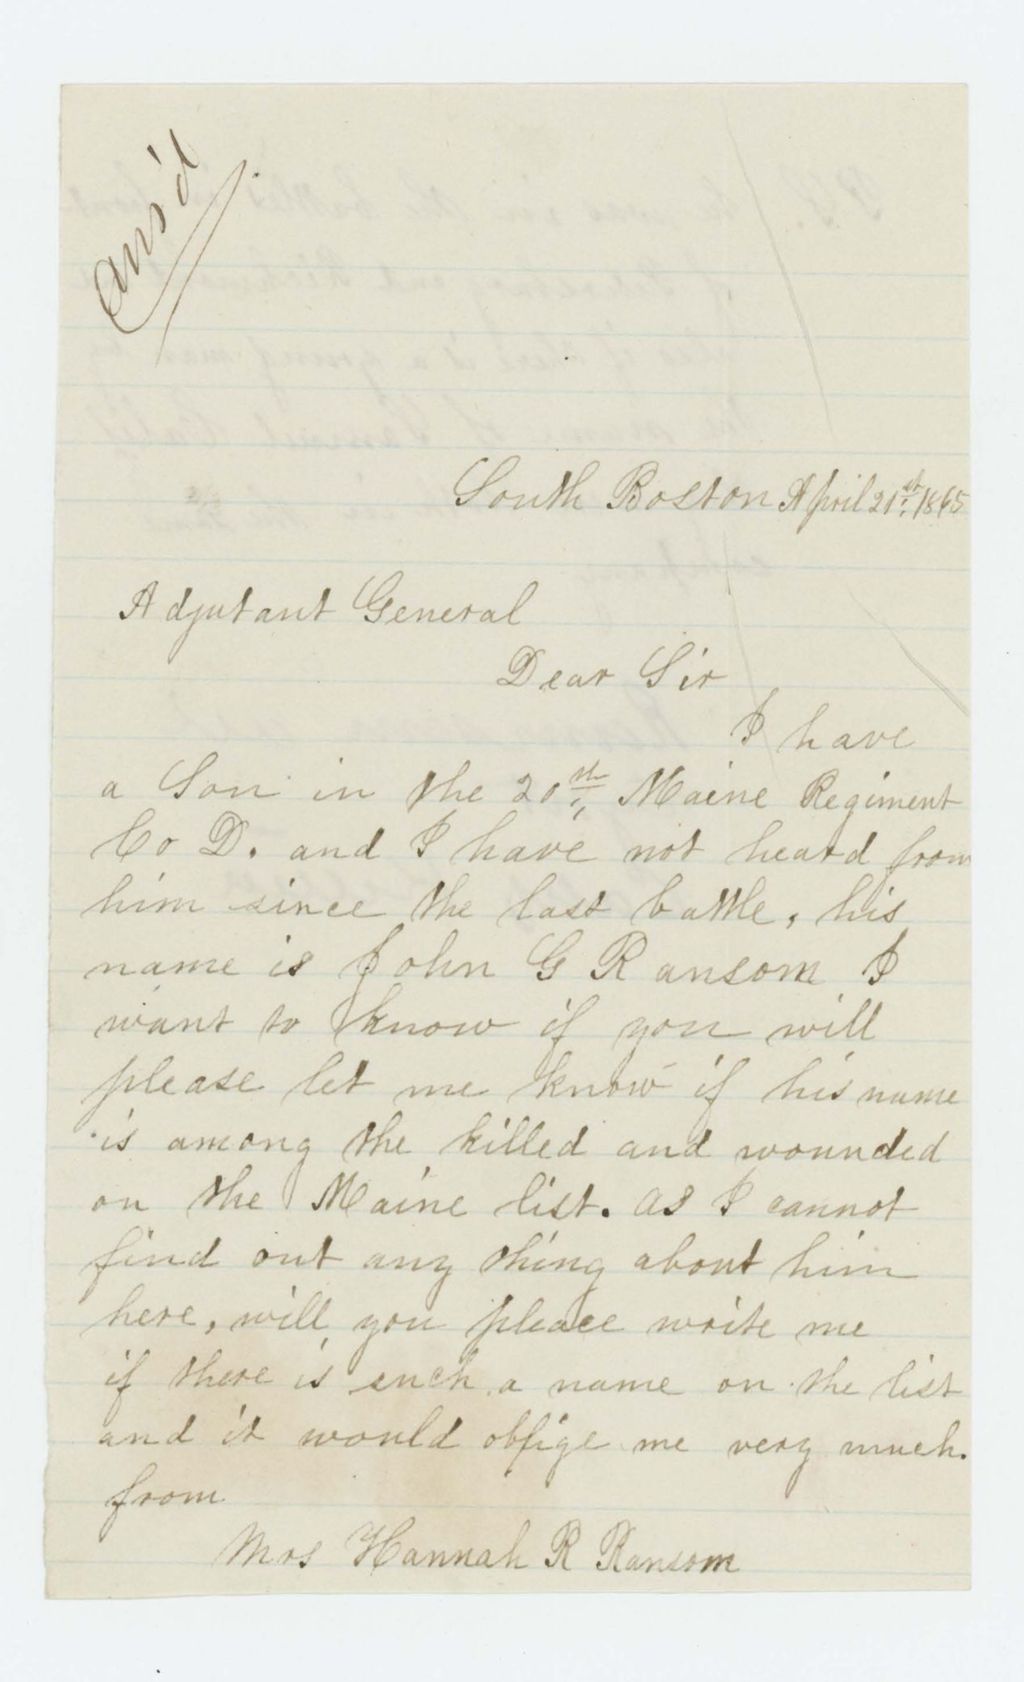 ans'd
South Boston April 21st, 1865
Adjutant General
Dear Sir
I have
a Son in the 20th, Maine Regiment
Co D. and I have not heard from
him since the last battle, his
name is John G Ransom I
want to know if you will
please let me know if his name
is among the killed and wounded
on the Maine list. as I cannot
find out any thing about him
here, will you please write me
if there is such a name on the list
and it would oblige me very much.
from
Mrs Hannah R Ransom